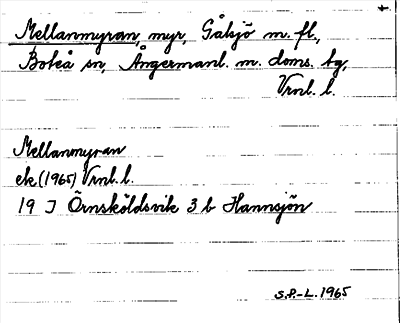 Mellanmyran, myr, Gålsjö m. fl.,
Boteå sn, Ångermanl. m. doms. bg,
Vrnl. l.
Mellanmyran
ek. (1965) Vrnl. l.
19 J Örnsköldsvik 3 b Hannsjön
S.P.-L. 1965